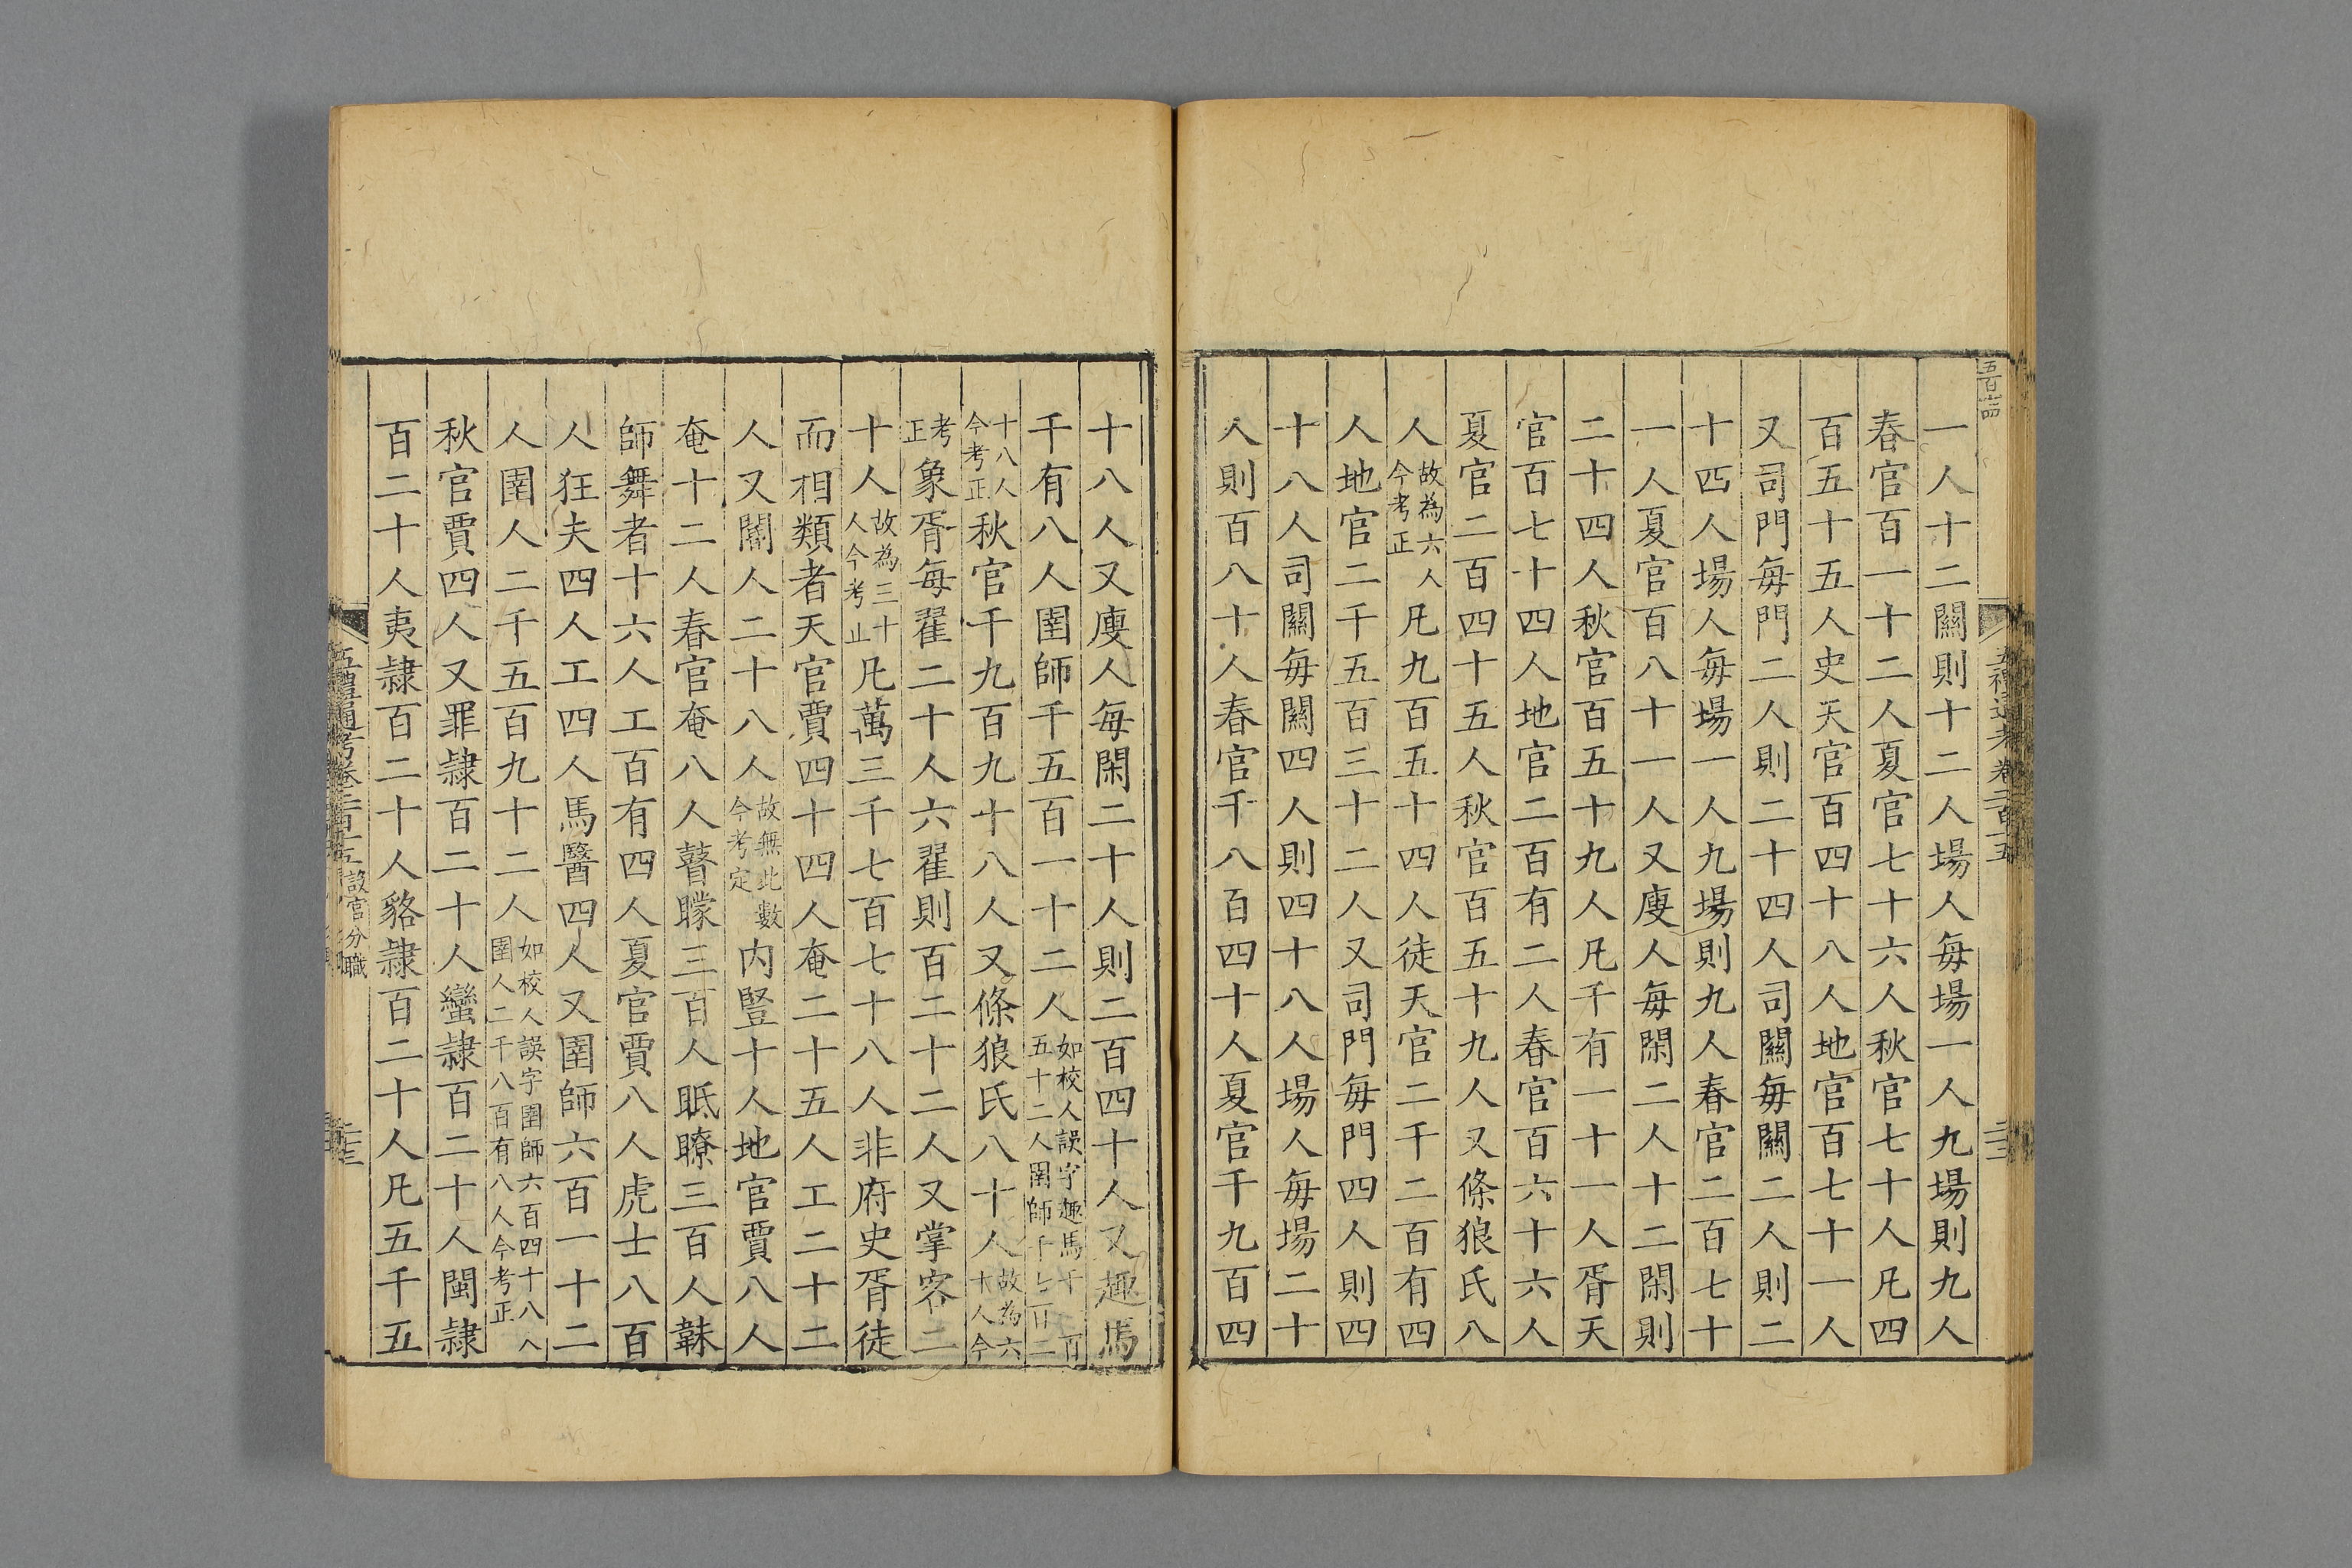 五百四
五禮通考卷二百十五
一人十二關則十二人場人每場一人九場則九人
春官百一十二人夏官七十六人秋官七十人凡四
百五十五人史天官百四十八人地官百七十一人
又司門每門二人則二十四人司關每關二人則二
十四人場人每場一人九場則九人春官二百七十
一人夏官百八十一人又廋人每閑二人十二閑則
二十四人秋官百五十九人凡千有一十一人胥天
官百七十四人地官二百有二人春官百六十六人
夏官二百四十五人秋官百五十九人又條狼氏八
人故為六人今考正凡九百五十四人徒天官二千二百有四
人地官二千五百三十二人又司門每門四人則四
十八人司關每關四人則四十八人場人每場二十
人則百八十人春官千八百四十人夏官千九百四
十八人又廋人每閑二十人則二百四十人又趣馬
千有八人圉師千五百一十二人如校人誤字趣馬千一百五十二人圉師千七百二
十八人今考正秋官千九百九十八人又條狼氏八十人故為六十人今
考正象胥每翟二十人六翟則百二十二人又掌客二
十人故為三十人今考止凡萬三千七百七十八人非府史胥徒
而相類者天官賈四十四人奄二十五人工二十二
人又閽人二十八人故無此數今考定内豎十人地官賈八人
奄十二人春官奄八人瞽矇三百人眡瞭三百人韎
師舞者十六人工百有四人夏官賈八人虎士八百
人狂夫四人工四人馬醫四人又圉師六百一十二
人圉人二千五百九十二人如校人誤字圉師六百四十八人圉人二千八百有八人今考正
秋官賈四人又罪隸百二十人蠻隸百二十人閩隸
百二十人夷隸百二十人貉隸百二十人凡五千五
五禮通考卷二百十五 設官分職